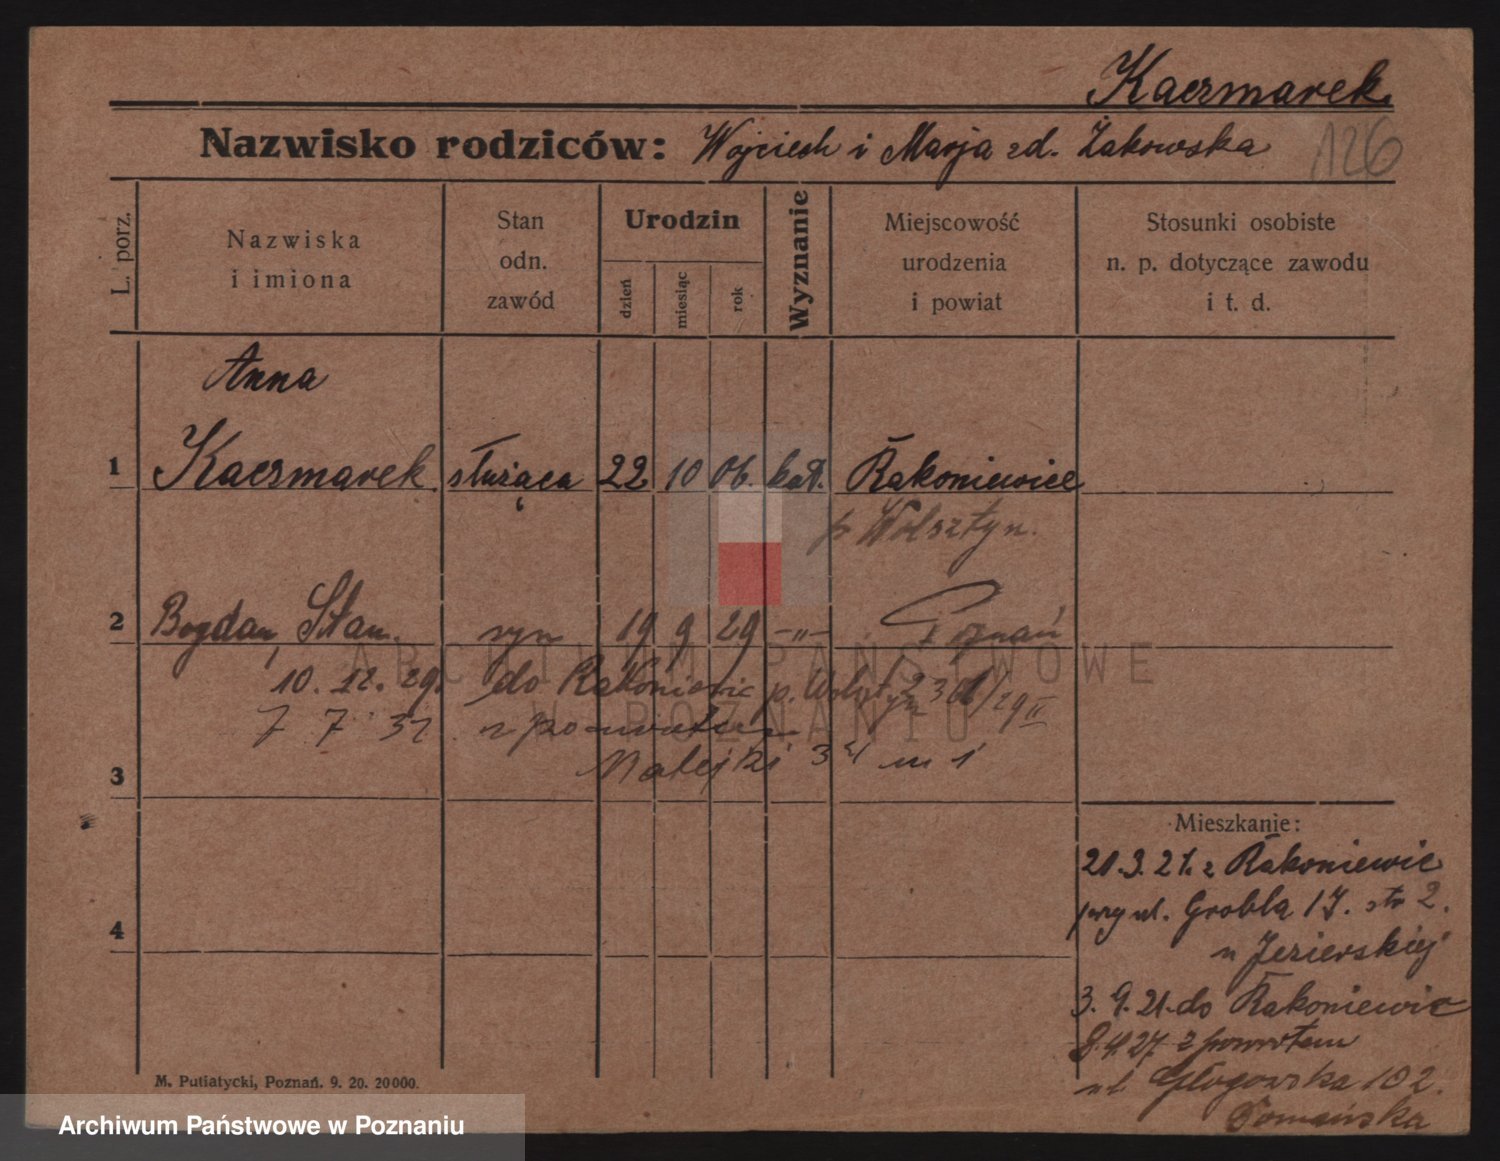 Kaczmarek
Nazwisko rodziców: Wojciech i Marja zd. Żakowska 126
L. porz.
Nazwiska
i imiona
Stan
odn.
zawód
Urodzin
dzień
miesiąc
rok
Wyznanie
Miejscowość
urodzenia
i powiat
Stosunki osobiste
n. p. dotyczące zawodu
i t. d.
Anna
1 Kaczmarek służąca 22 10 06. kat. Rakoniewice
p Wolsztyn.
2 Bogdan, Stan. syn 19 9 29 -"- Poznań
ARCHIWUM PAŃSTWOWE
10. 12. 29. do Rakoniewic p. Wolsztyn
W POZNANIU
7 7 32 z powrotem
Matejki m 1
3
Mieszkanie:
21.3.21. z Rakoniewic
przy ul. Grobla 17. str 2.
4
u Jezierskiej
3. 9. 21. do Rakoniewic
8.4.27 z powrotem
ul. Głogowska 102.
M. Putiatycki, Poznań. 9. 20. 20000.
Archiwum Państwowe w Poznaniu